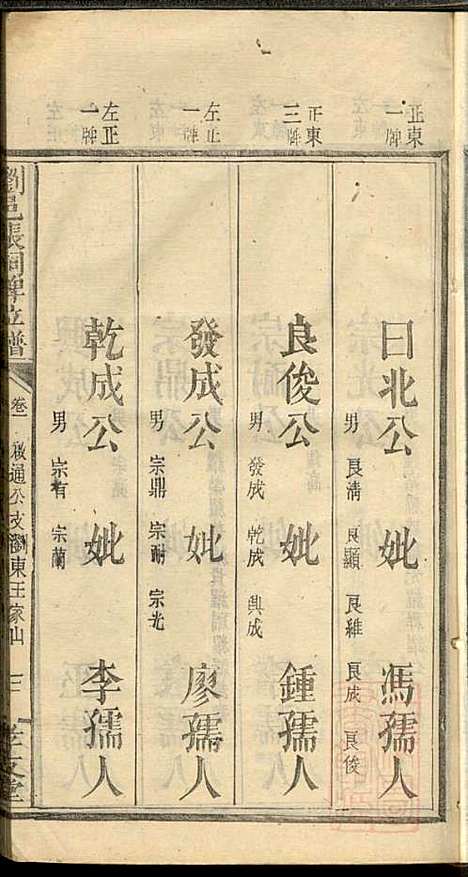 正東一牌
曰北公 妣 馮孺人
男 良清 良顯 良維 良成 良俊
正東三牌
良俊公 妣 鍾孺人
男 發成 乾成 興成
左正一牌
發成公 妣 廖孺人
男 宗鼎 宗耐 宗光
左正一牌
乾成公 妣 李孺人
男 宗有 宗蘭
瀏邑張祠牌位譜 卷一 啟通公支瀏東王家山 三 孝友堂